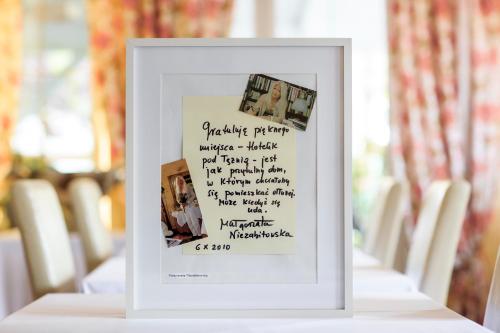 Gratuluję pięknego
miejsca – Hotelik
pod Tężnią – jest
jak przytulny dom,
w którym chciałoby
się pomieszkać dłużej.
Może kiedyś się
uda.
Małgorzata
Niezabitowska
6 X 2010
Małgorzata Niezabitowska